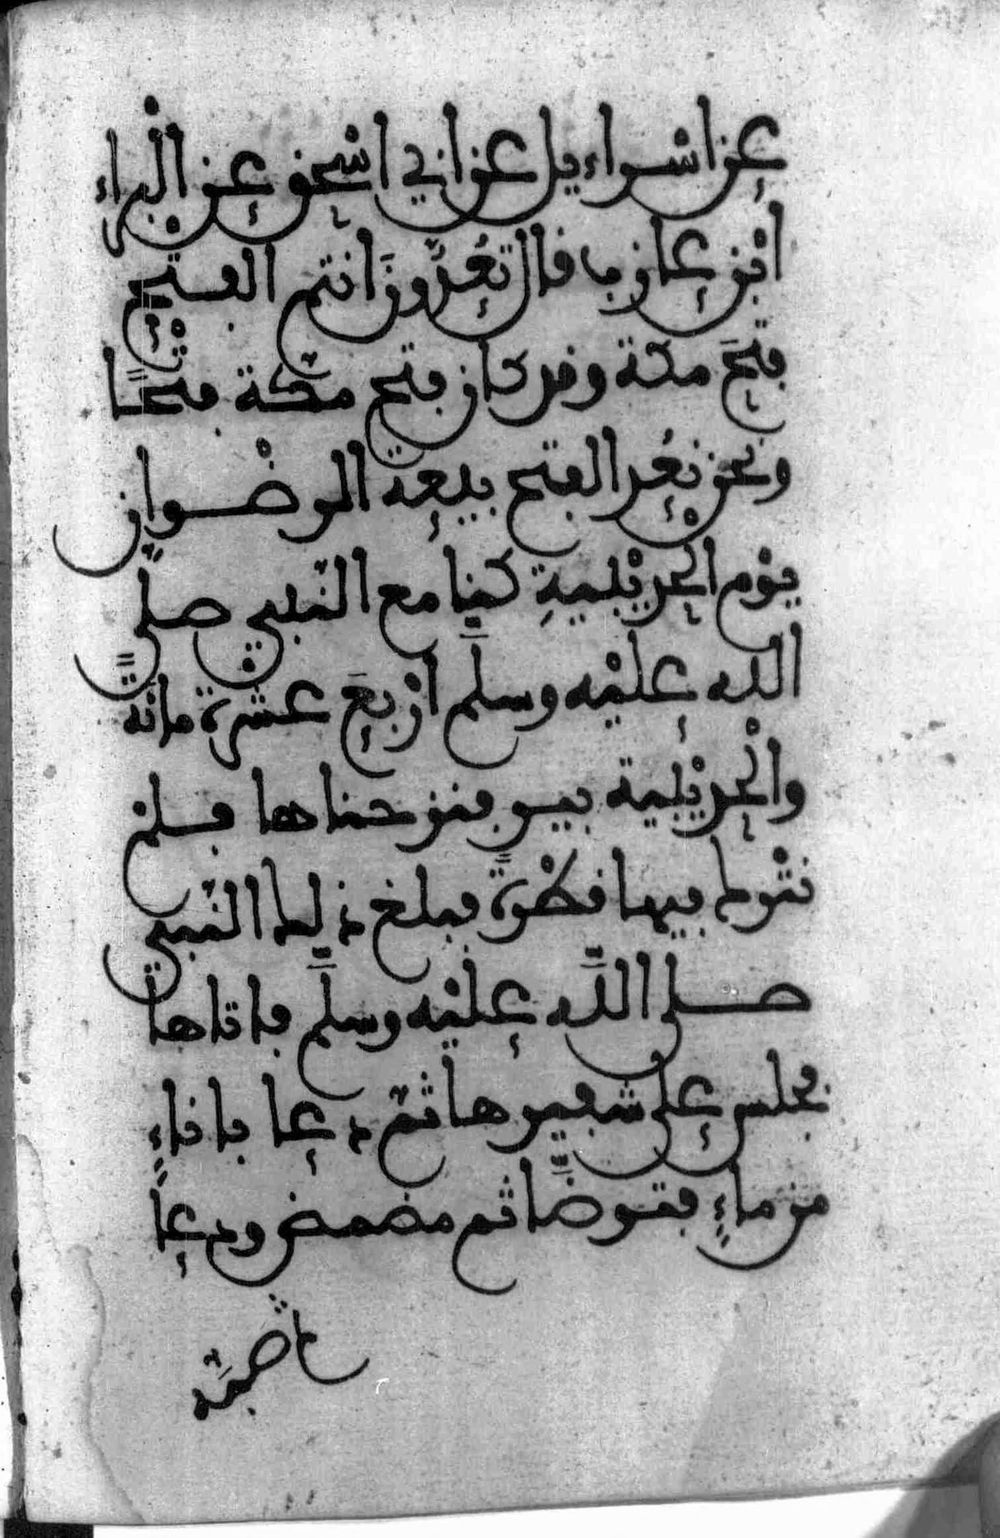 عن اسْراءيل عن ابي اسْحٰق عن الْبراء
ابْن عازب قال تَعُدُّونَ انتم الفتح
فتحَ مكة وقد كان فتح مكّة فتْحًا
ونحن نَعُد الفتح بيعة الرضْوان
يوْم الْحديْبيةِ كنّا مع النّبي صلّى
الله عليْه وسلَّم ارْبعَ عشْرة مائةً
والْحديْبية بير فنزحناها فلم
نتْرك فيها قطْرةً فبلغ ذلك النّبي
صلى اللَّه عليْه وسلَّم فاتاها
فجلس على شفيرها ثمّ دعا باناءٍ
من ماءٍ فتوضَّا ثم مضمض ودعاَ
ثم صبّه